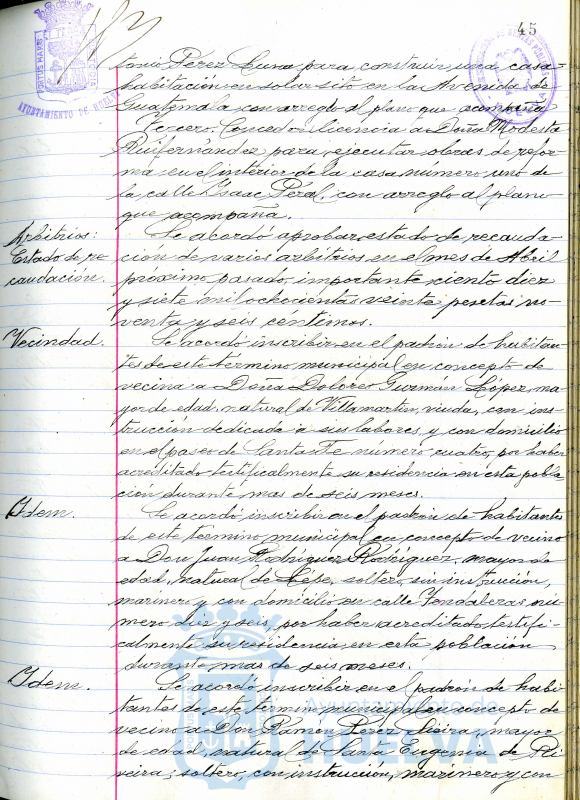 45
AYUNTAMIENTO DE HUELVA
tonio Pérez Luna para construir una casa-
habitación en solar sito en la Avenida de
Guatemala con arreglo al plano que acompaña
Tercero. Conceder licencia a Doña Modesta
Ruifernández para ejecutar obras de refor-
ma en el interior de la casa número uno de
la calle Isaac Peral, con arreglo al plano
que acompaña.
Arbitrios:
Estado de re
caudación.
Se acordó aprobar estado de recauda-
ción de varios arbitrios en el mes de Abril
próximo pasado, importante ciento diez
y siete mil ochocientas veinte pesetas no-
venta y seis céntimos.
Vecindad.
Se acordó inscribir en el padrón de habitan-
tes de este término municipal en concepto de
vecina a Doña Dolores Guzmán López, ma
yor de edad, natural de Villamartin, viuda, con ins-
trucción dedicada a sus labores, y con domicilio
en el paseo de Santa Fe numero cuatro, por haber
acreditado testificalmente su residencia en esta pobla-
ción durante mas de seis meses.
Idem.
Se acordó inscribir en el padrón de habitantes
de este termino municipal en concepto de vecino
a Don Juan Rodríguez Rodríguez, mayor de
edad, natural de Lepe, soltero, sin instrucción,
marinero y con domicilio en calle nú-
mero diez y seis, por haber acreditado testifi-
calmente su residencia en esta población
durante mas de seis meses.
Idem.
Se acordó inscribir en el padrón de habi-
tantes de este término municipal en concepto de
vecino a Don Ramón Pérez mayor
de edad, natural de Santa Eugenia de Ri-
veira, soltero, con instrucción, marinero y con
Ayuntamiento de
HUELVA